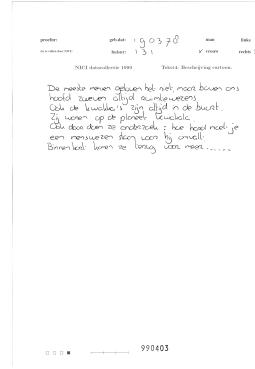 proefnr: geb.dat: 190378 man links
lftdnr: 131 vrouw rechts
NICI datacollectie 1999 Tekst4: Beschrijving cartoon.
De meeste mensen geloven het niet, maar boven ons
hoofd zweven altijd ruimtewezens.
Ook de kwakko's zijn altijd in de buurt.
Zij wonen op de planeet
Ook daar doen ze onderzoek: hoe hard moet je
een menswezen slaan voor hij omvalt.
Binnenkort komen ze terug voor meer......
990403